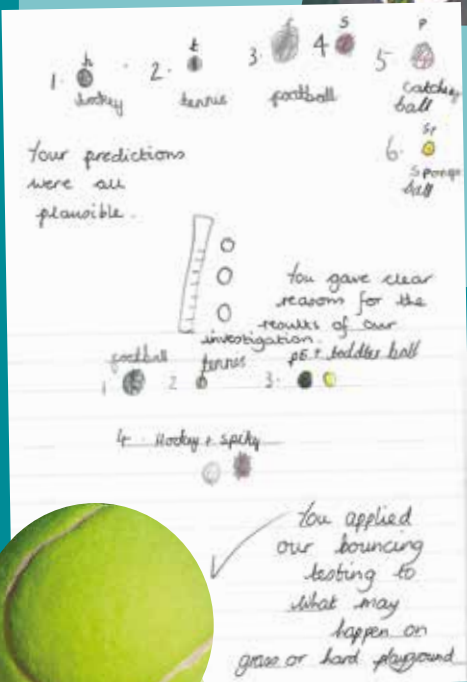 h t f s p
1. 2. 3. 4 5
hockey tennis football catching
ball
6. sp
sponge
ball
Your predictions
were all
plausible.
You gave clear
reasons for the
results of our
investigation.
football tennis PE + toddler ball
1 2 3.
4. Hockey + Spiky
You applied
our bouncing
testing to
what may
happen on
grass or hard playground